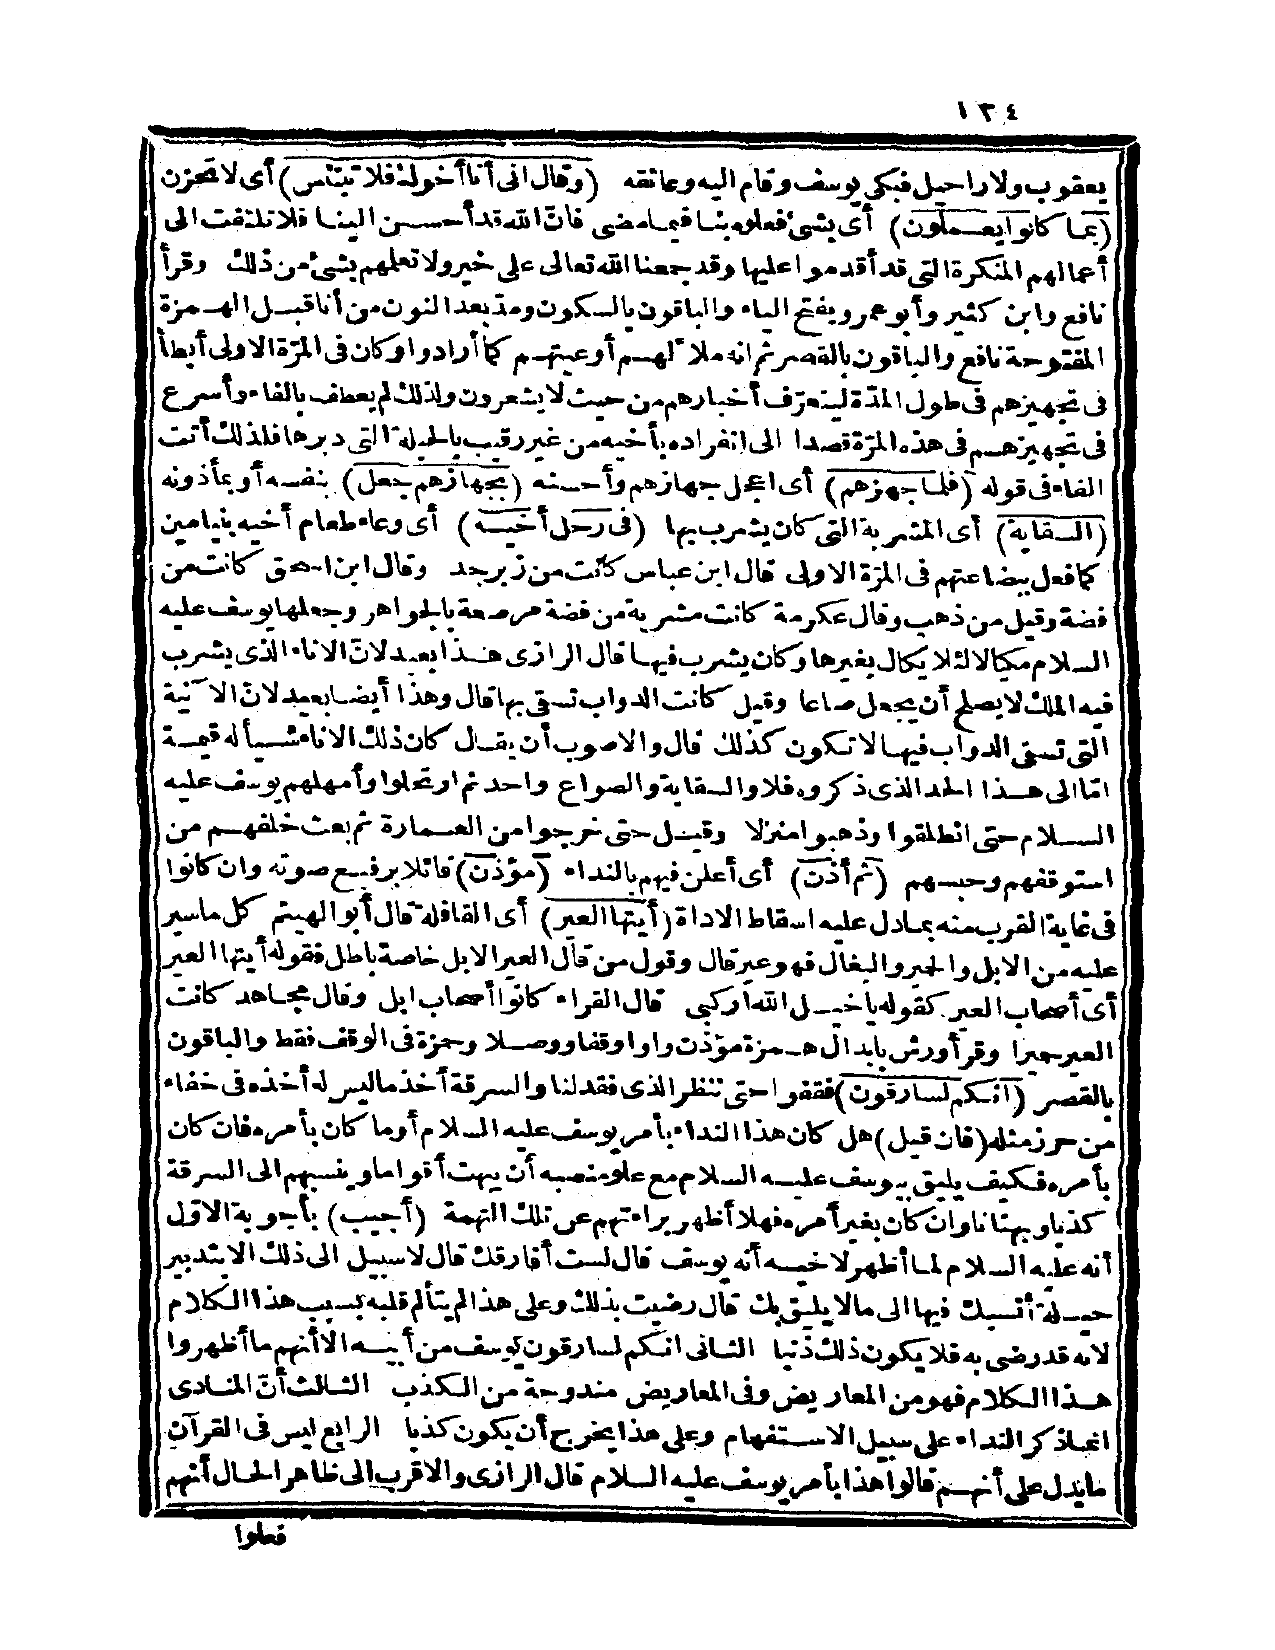 ١٣٤
يعقوب ولا راحيل فبكى يوسف وقام اليه وعانقه (وقال انى أنا أخوك فلا تبتئس) أى لا تحزن
(بما كانوا يعملون) أى بشئ فعلوه بنا فيما مضى فانّ الله قد أحسن الينا فلا تلتفت الى
أعمالهم المنكرة التى قد أقدموا عليها وقد جمعنا الله تعالى على خير ولا تعلمهم بشئ من ذلك وقرأ
نافع وابن كثير وأبو عمرو بفتح الياء والباقون بالسكون ومدّ بعد النون من أنا قبل الهمزة
المفتوحة نافع والباقون بالقصر ثم انه ملأ لهم أوعيتهم كما أرادوا وكان فى المرّة الاولى أبطأ
فى تجهيزهم فى طول المدّة ليتعرّف أخبارهم من حيث لا يشعرون ولذلك لم يعطف بالفاء وأسرع
فى تجهيزهم فى هذه المرّة قصدا الى انفراده بأخيه من غير رقيب بالحيلة التى دبرها فلذلك أتت
الفاء فى قوله (فلما جهزهم) أى اعجل جهازهم وأحسنه (بجهازهم جعل) بنفسه أو بمأذونه
(السقاية) أى المشربة التى كان يشرب بها (فى رحل أخيه) أى وعاء طعام أخيه بنيامين
كما فعل ببضاعتهم فى المرّة الاولى قال ابن عباس كانت من زبرجد وقال ابن اسحق كانت من
فضة وقيل من ذهب وقال عكرمة كانت مشربة من فضة مرصعة بالجواهر وجعلها يوسف عليه
السلام مكيالا لئلا يكال بغيرها وكان يشرب فيها قال الرازى هذا بعيد لانّ الاناء الذى يشرب
فيه الملك لا يصلح أن يجعل صاعا وقيل كانت الدواب تسقى بها قال وهذا أيضا بعيد لانّ الآنية
التى تسقى الدواب فيها لا تكون كذلك قال والاصوب أن يقال كان ذلك الاناء شيأ له قيمة
امّا الى هذا الحد الذى ذكروه فلا والسقاية والصواع واحد ثم ارتحلوا وأمهلهم يوسف عليه
السلام حتى انطلقوا وذهبوا منزلا وقيل حتى خرجوا من العمارة ثم بعث خلفهم من
استوقفهم وحبسهم (ثم أذن) أى أعلن فيهم بالنداء (مؤذن) قائلا برفيع صوته وان كانوا
فى غاية القرب منه بما دل عليه اسقاط الاداة (أيتها العير) أى القافلة قال أبو الهيثم كل ما سير
عليه من الابل والحمير والبغال فهو عير قال وقول من قال العير الابل خاصة باطل فقوله أيتها العير
أى أصحاب العير كقوله يا خيل الله اركبى قال الفراء كانوا أصحاب ابل وقال مجاهد كانت
العير حميرا وقرأ ورش بابدال همزة مؤذن واوا وقفا ووصلا وحمزة فى الوقف فقط والباقون
بالقصر (انكم لسارقون) فقفوا حتى ننظر الذى فقد لنا والسرقة أخذ ما ليس له أخذه فى خفاء
من حرز مثله (فان قيل) هل كان هذا النداء بأمر يوسف عليه السلام أو ما كان بأمره فان كان
بأمره فكيف يليق بيوسف عليه السلام مع علو منصبه أن يبهت أقواما وينسبهم الى السرقة
كذبا وبهتانا وان كان بغير أمره فهلا أظهر براءتهم عن تلك التهمة (أجيب) بأجوبة الاوّل
أنه عليه السلام لما أظهر لاخيه أنه يوسف قال لست أفارقك قال لا سبيل الى ذلك الا بتدبير
حيلة أنسبك فيها الى ما لا يليق بك قال رضيت بذلك وعلى هذا لم يتألم قلبه بسبب هذا الكلام
لانه قد رضى به فلا يكون ذلك ذنبا الثانى انكم لسارقون يوسف من أبيه الا أنهم ما أظهروا
هذا الكلام فهو من المعاريض وفى المعاريض مندوحة من الكذب الثالث أنّ المنادى
انما ذكر النداء على سبيل الاستفهام وعلى هذا يخرج أن يكون كذبا الرابع ليس فى القرآن
ما يدل على أنهم قالوا هذا بأمر يوسف عليه السلام قال الرازى والاقرب الى ظاهر الحال أنهم
فعلوا